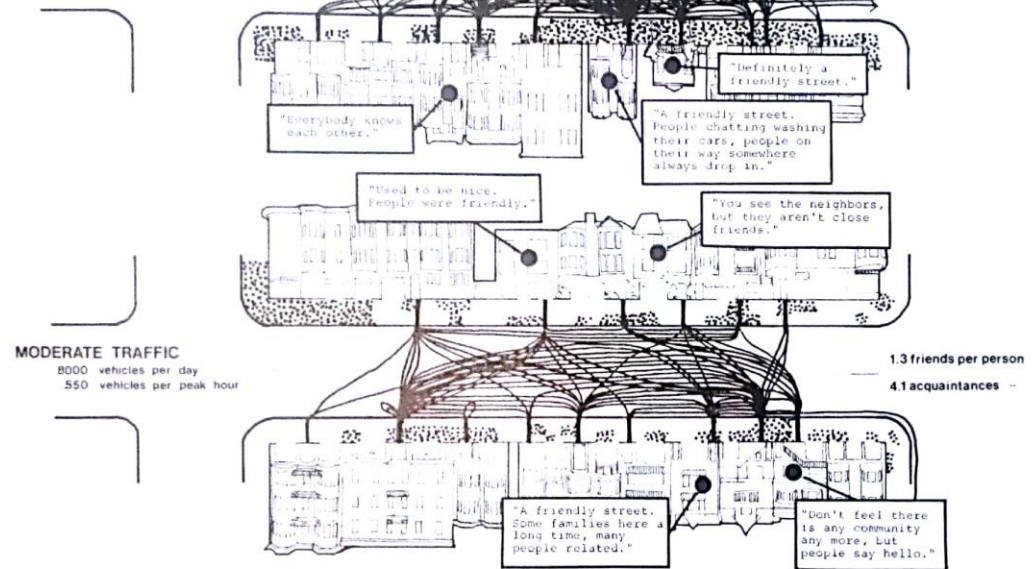 "Definitely a
friendly street."
"Everybody knows
each other."
"A friendly street.
People chatting washing
their cars, people on
their way somewhere
always drop in."
"Used to be nice.
People were friendly."
"You see the neighbors,
but they aren't close
friends."
MODERATE TRAFFIC
8000 vehicles per day
550 vehicles per peak hour
1.3 friends per person
4.1 acquaintances "
"A friendly street.
Some families here a
long time, many
people related."
"Don't feel there
is any community
any more, but
people say hello."